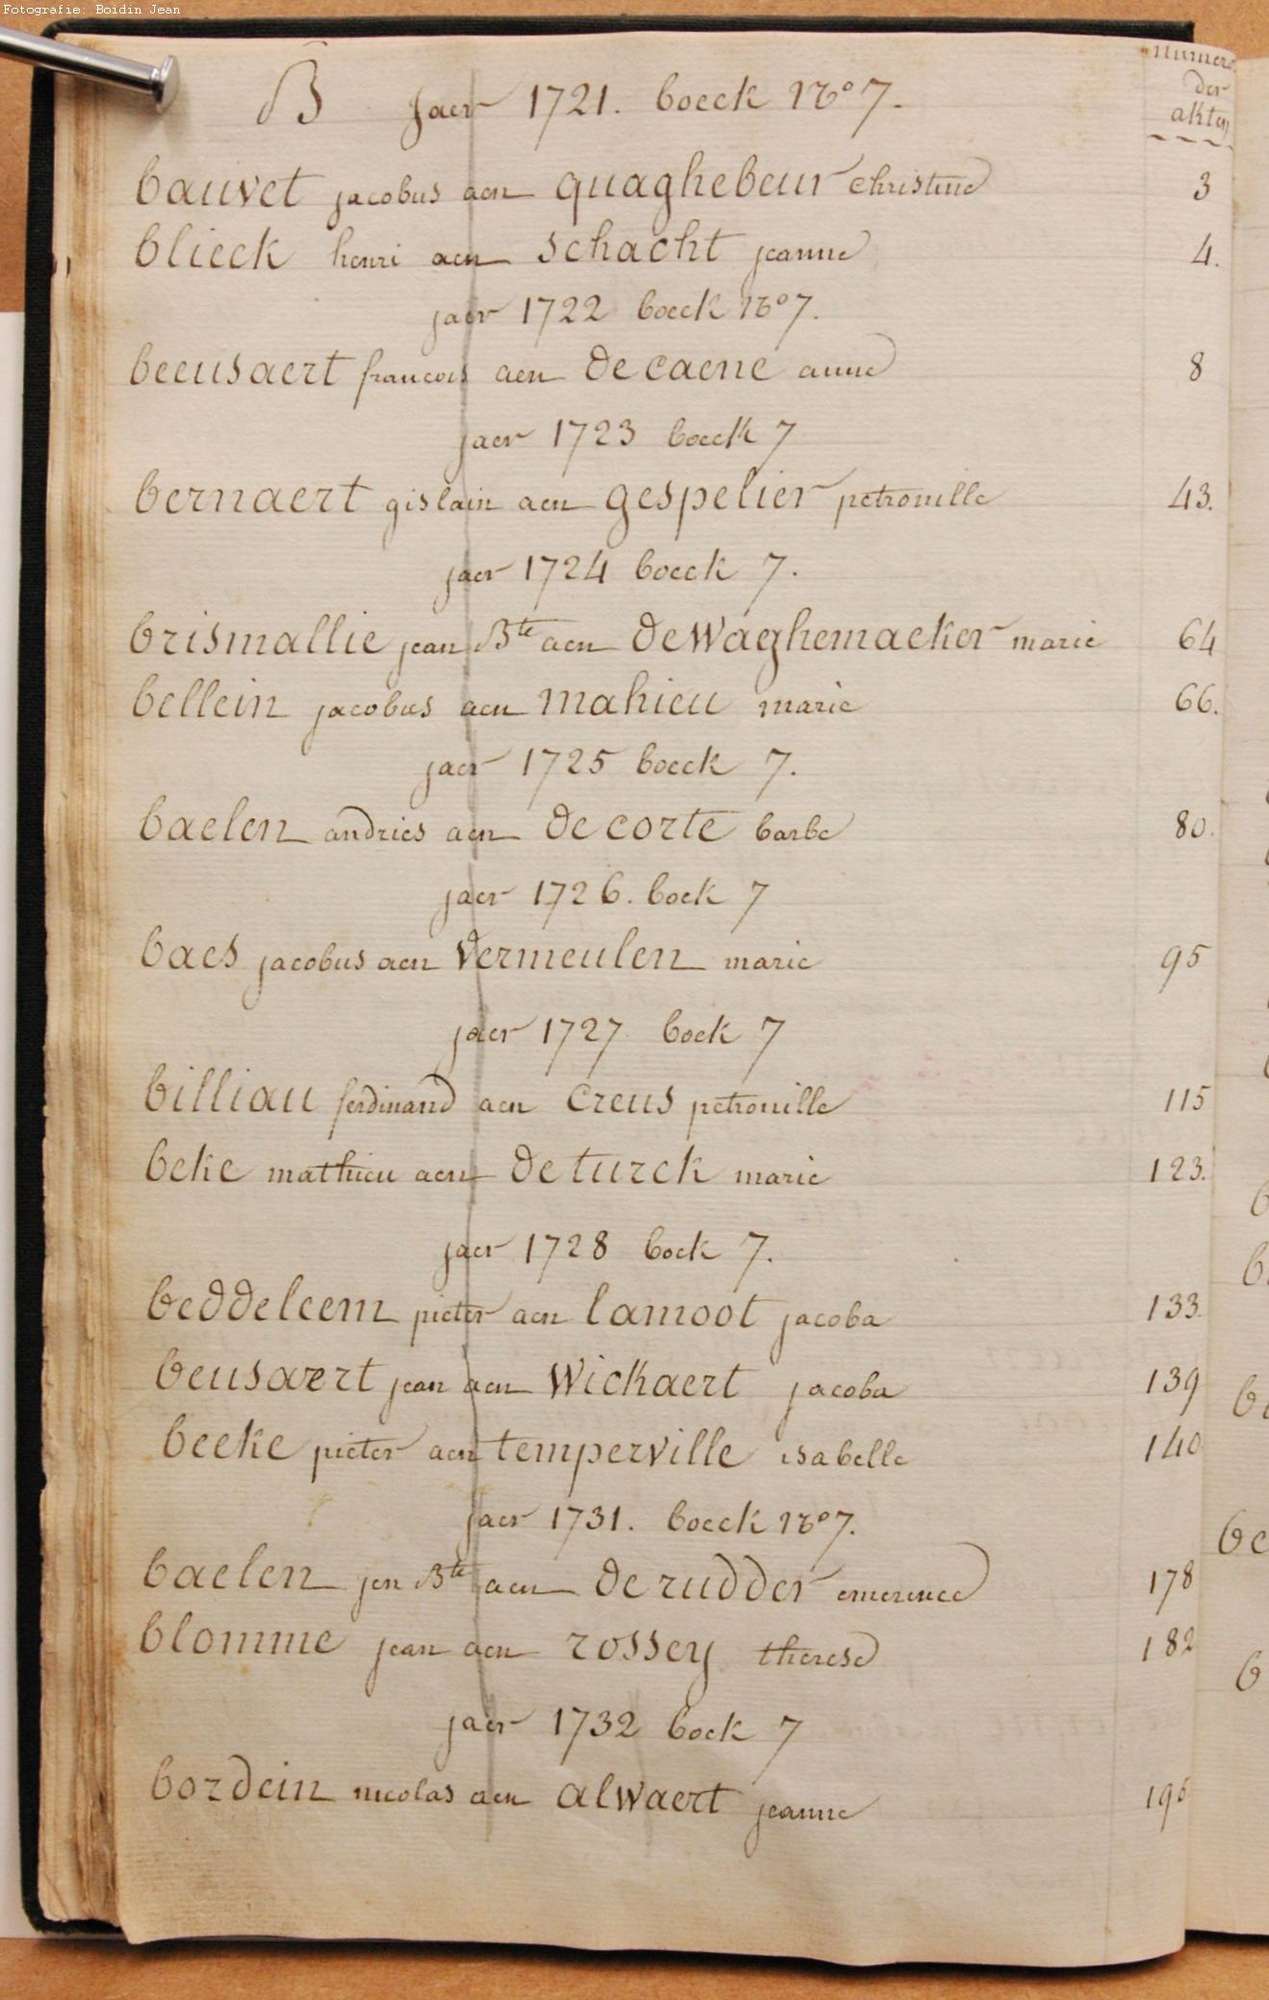 Fotografie: Boidin Jean
B jaer 1721. boeck No 7.
numero
der
akten
bauvet jacobus aen quaghebeur christine 3
blieck henri aen schacht jeanne 4.
jaer 1722 boeck No 7.
beeusaert francois aen de caene anne 8
jaer 1723 boeck 7
bernaert gislain aen gespelier petronille 43.
jaer 1724 boeck 7.
brismallie jean Bte aen de Waghemaeker marie 64
bellein jacobus aen mahieu marie 66.
jaer 1725 boeck 7.
baelen andries aen de corte barbe 80.
jaer 1726. boek 7
baes jacobus aen vermeulen marie 95
jaer 1727 boek 7
billiau ferdinand aen creus petronille 115
beke mathieu aen de turck marie 123.
jaer 1728 boek 7.
beddeleem pieter aen lamoot jacoba 133.
beusaert jean aen Wickaert jacoba 139
beeke pieter aen temperville isabelle 140
jaer 1731. boeck No 7.
baelen jen Bte aen de rudder emerence 178
blomme jean aen rossey therese 182
jaer 1732 boek 7
bordein nicolas aen alwaert jeanne